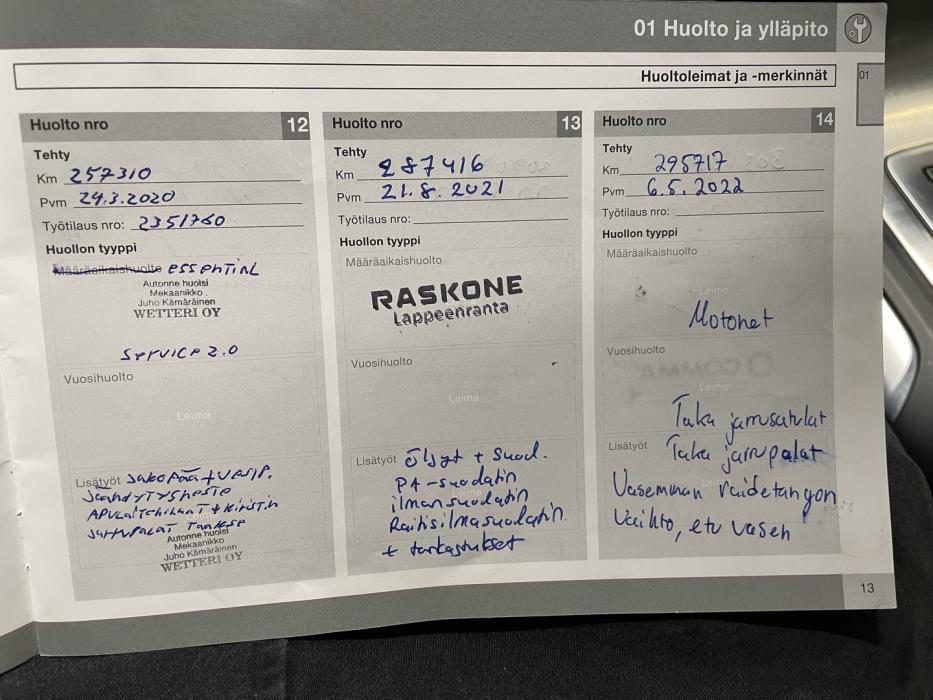 01 Huolto ja ylläpito
Huoltoleimat ja -merkinnät
01
Huolto nro 12
Tehty
Km 257310
Pvm 24.3.2020
Työtilaus nro: 2351760
Huollon tyyppi
Määräaikaishuolto ESSENTIAL
Autonne huolsi
Mekaanikko
Juho Kämäräinen
WETTERI OY
SERVICE 2.0
Vuosihuolto
Leima
Lisätyöt JAKOPÄÄ + VESIP.
JÄÄHDYTYSNESTE
APULAITEHIHNAT + KIRISTIN
JARRUPALAT TAAKSE
Autonne huolsi
Mekaanikko
Juho Kämäräinen
WETTERI OY
Huolto nro 13
Tehty
Km 287416
Pvm 21.8.2021
Työtilaus nro:
Huollon tyyppi
Määräaikaishuolto
RASKONE
Lappeenranta
Vuosihuolto
Leima
Lisätyöt Öljyt + suod.
PA-suodatin
ilmansuodatin
Raitisilmasuodatin.
+ tarkastukset
Huolto nro 14
Tehty
Km 295717
Pvm 6.5.2022
Työtilaus nro:
Huollon tyyppi
Määräaikaishuolto
Leima
Motonet
Vuosihuolto
Leima
Taka jarrusatulat
Lisätyöt Taka jarrupalat
Vasemman raidetangon
Vaihto, etu vasen
13